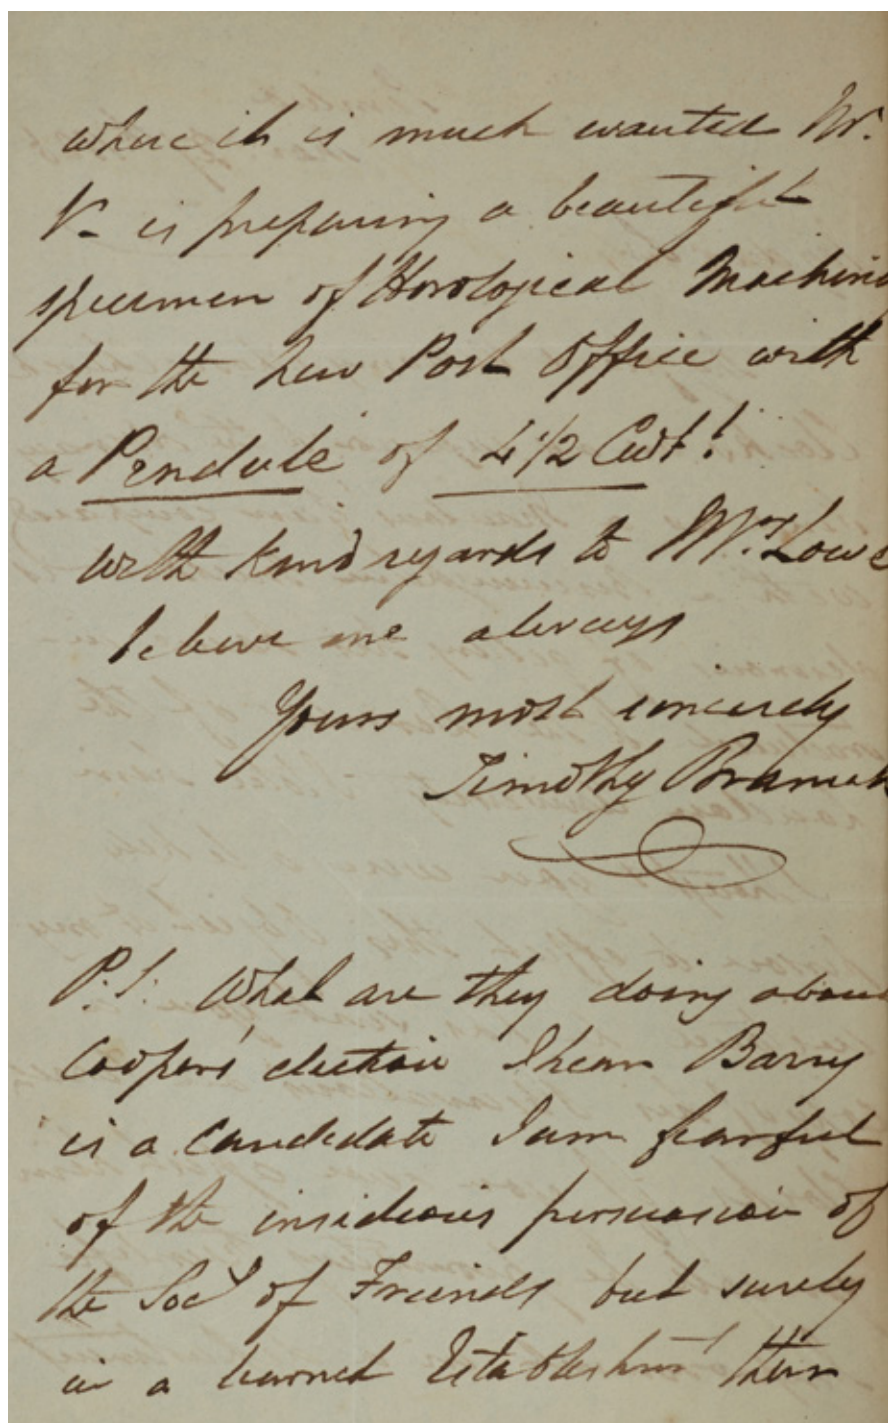 where it is much wanted Mr.
V– is preparing a beautiful
specimen of Horological Machinery
for the new Post Office with
a Pendule of 4 1/2 Cwt!
with kind regards to Mrs Lowe
believe me always
Yours most sincerely
Timothy Bramah
P.S. What are they doing about
Cooper's election I hear Barry
is a candidate I am fearful
of the insidious persuasion of
the Socy of Friends but surely
in a learned Establishmt there